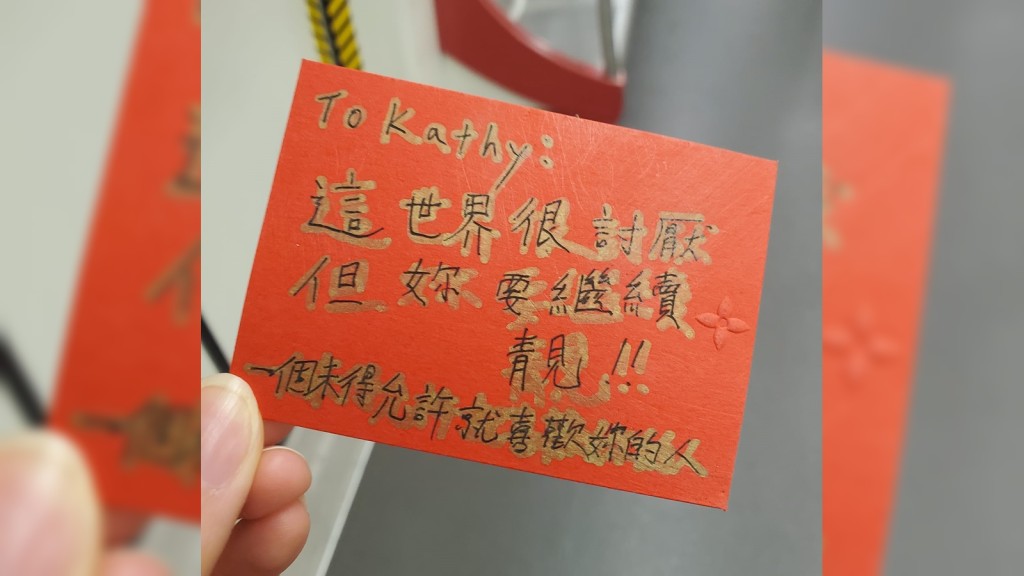 To Kathy:
這世界很討厭
但妳要繼續
青見!!
一個未得允許就喜歡妳的人